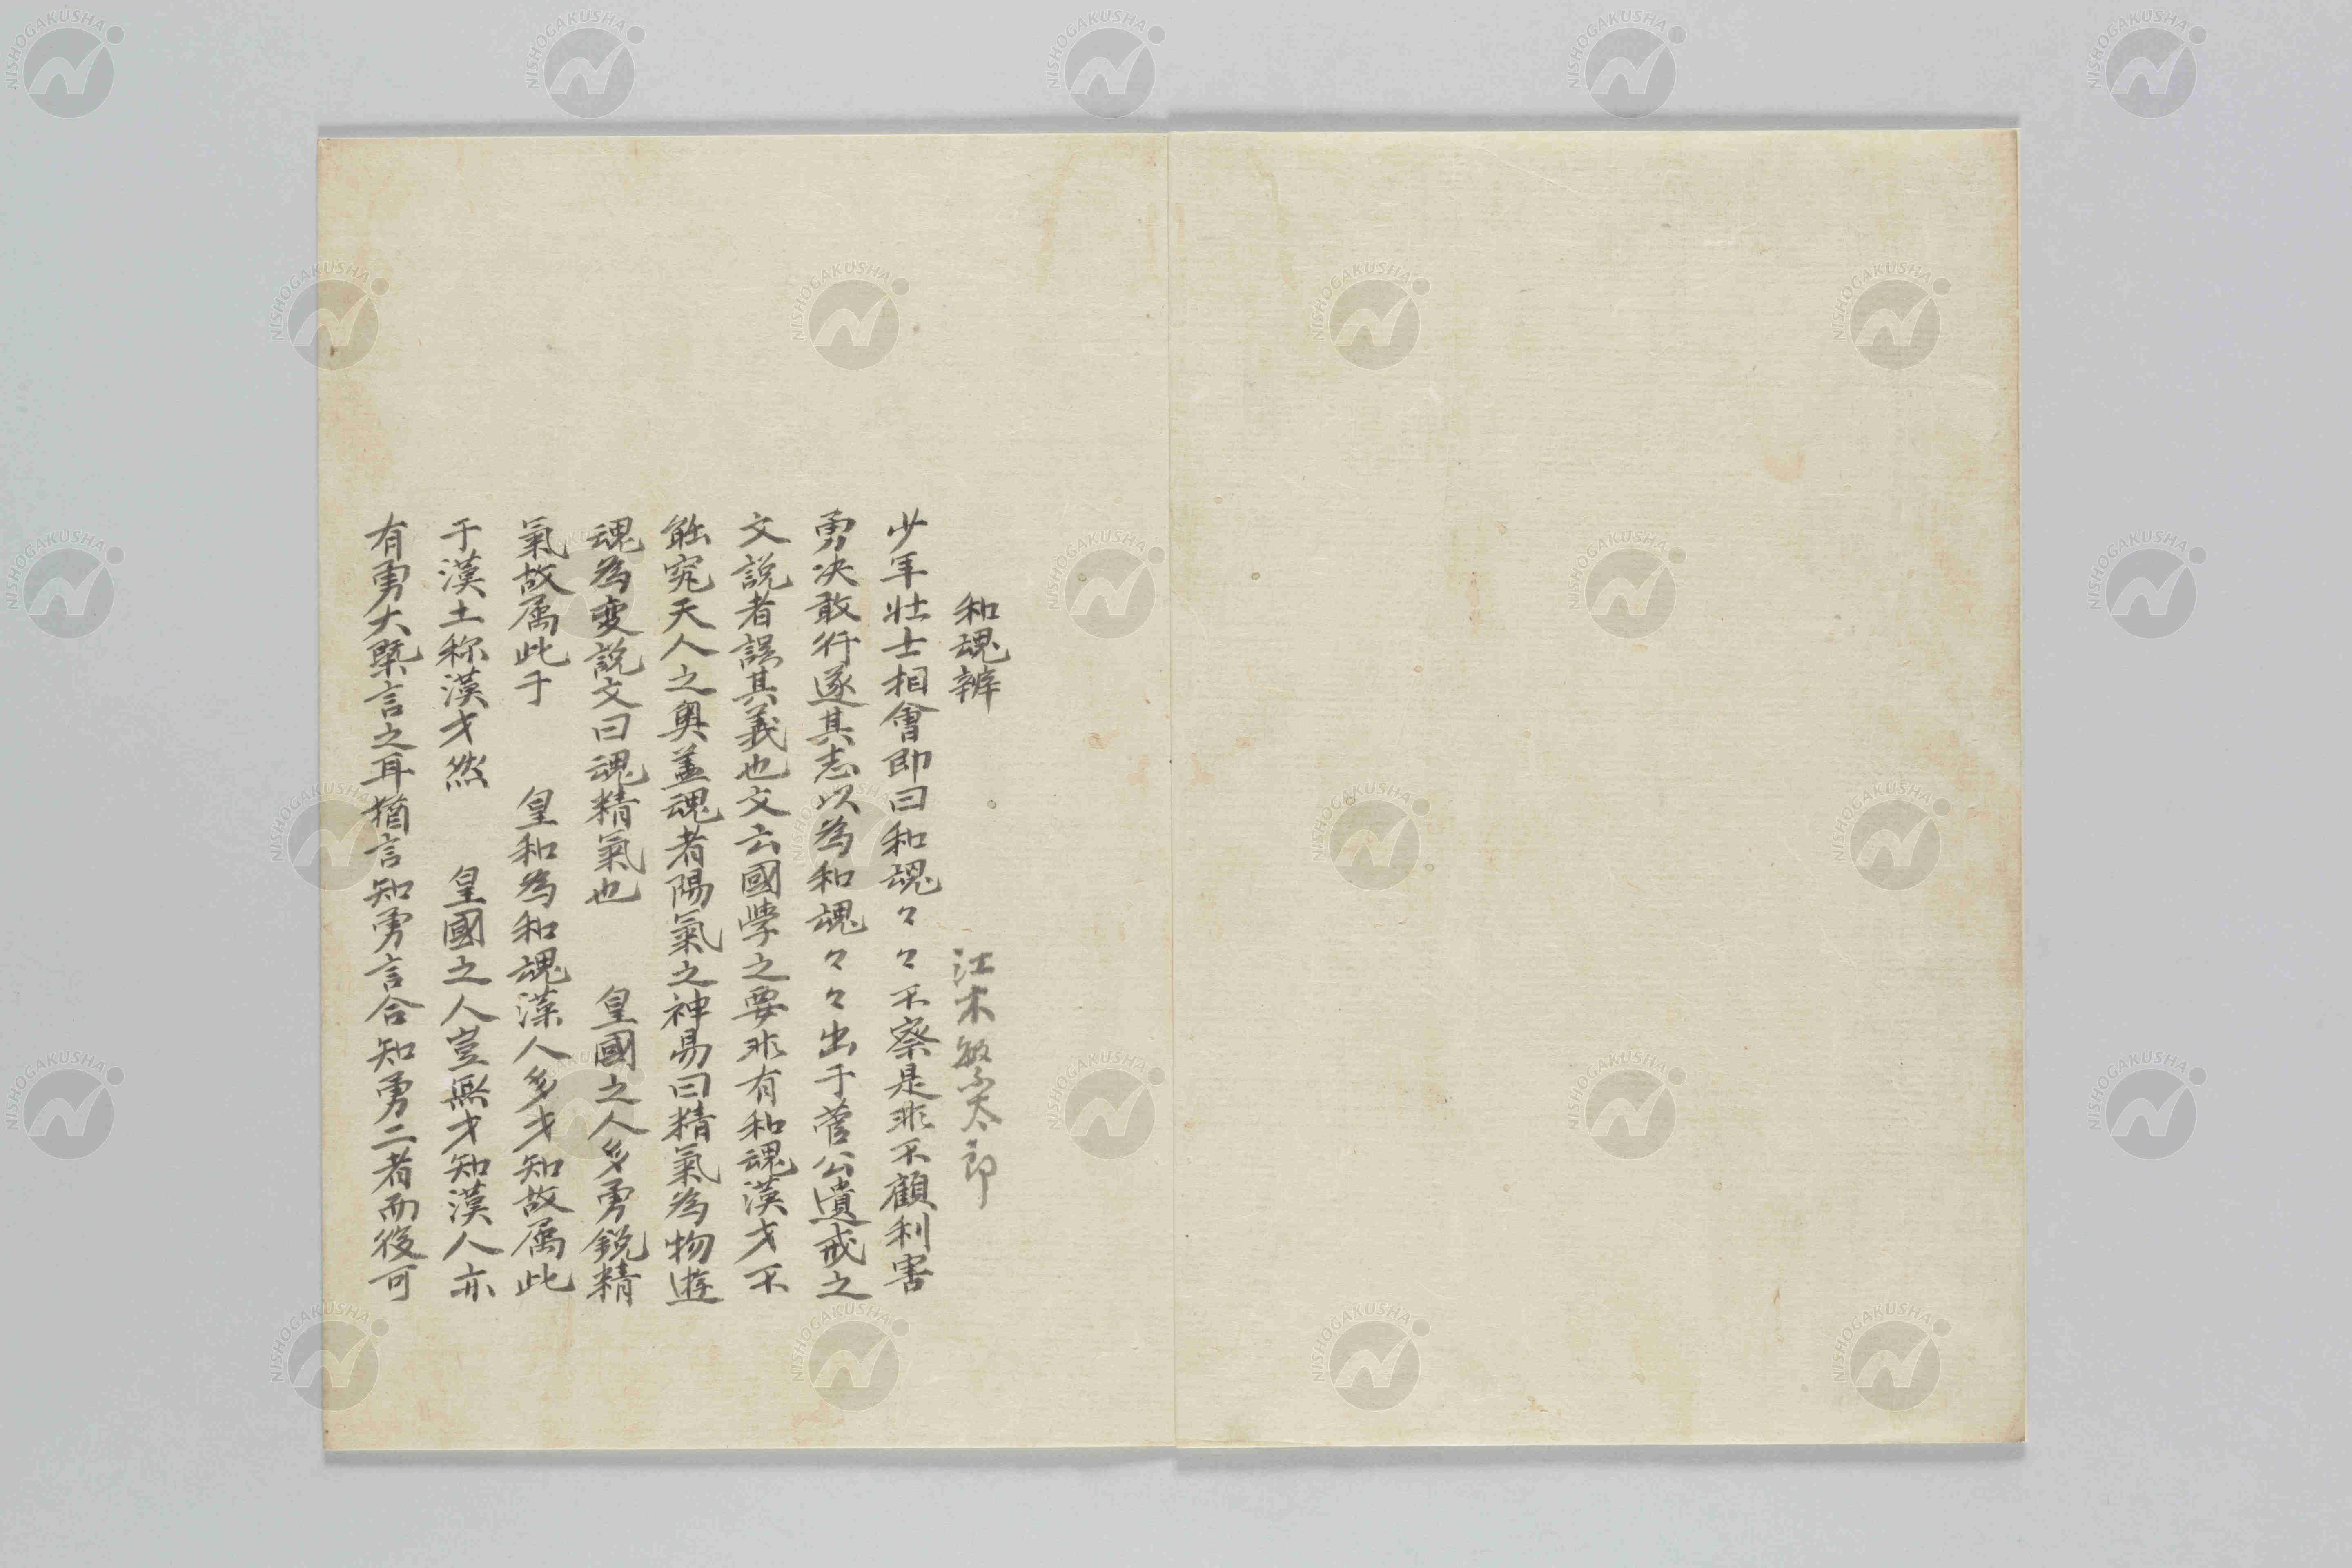 和魂辨　江木繁太郎
少年壮士相會即曰和魂々々不察是非不顧利害
勇决敢行遂其志以為和魂々々出于菅公遺戒之
文説者誤其義也文云國學之要非有和魂漢才不
能究天人之奥蓋魂者陽氣之神易曰精氣為物遊
魂為変説文曰魂精氣也　皇國之人多勇鋭精
氣故属此于　皇和為和魂漢人多才知故属此
于漢土称漢才然　皇國之人豈無才知漢人亦
有勇大槩言之耳猶言知勇言合知勇二者而後可
NISHOGAKUSHA